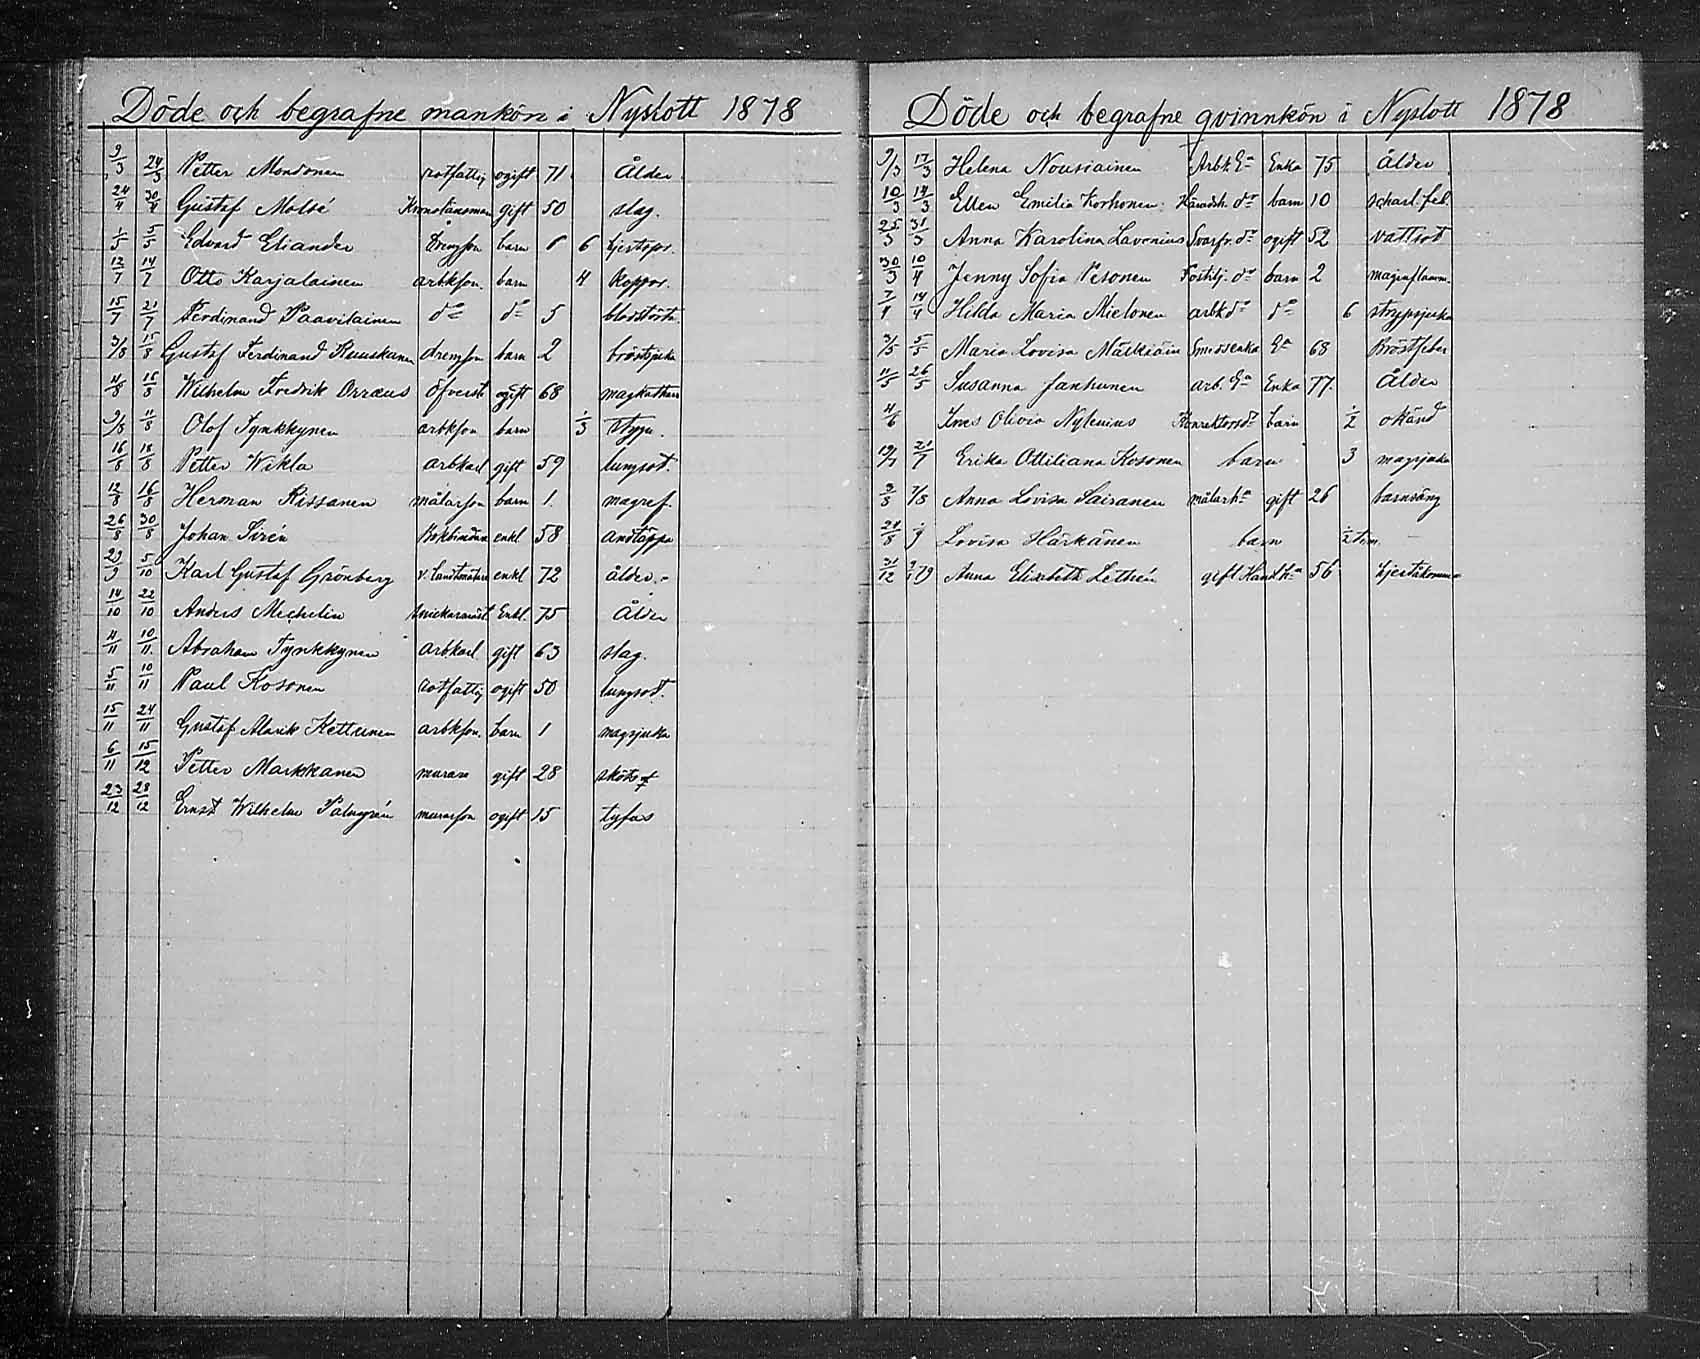 Döde och begrafne mankön i Nyslott 1878
9/3 24/3 Petter Mondonen rotfattig ogift 71 Ålder
24/4 30/4 Gustaf Molsé Kronolänsman gift 50 slag.
1/5 5/5 Edvard Eliander Drengson barn 6
12/7 14/7 Otto Karjalainen arbkson. barn 4 Koppor.
15/7 21/7 Ferdinand Paavilainen do do 5
3/8 15/8 Gustaf Ferdinand Ruuskanen drengson barn 2 bröstsjuka
4/8 15/8 Wilhelm Fredrik Orræus öfverste ogift 68 magkatharr
9/8 11/8 Olof Tynkkynen arbkson barn 1/3
16/8 18/8 Petter Wikla arbkarl gift 59 lungsot.
12/8 16/8 Herman Rissanen målarson barn 1. magref.
26/8 30/8 Johan Sirén Bokbindare enkl 58 andtäppa
29/9 5/10 Karl Gustaf Grönberg v. Landtmätare enkl 72 ålder.
14/10 22/10 Anders Mechelin Enkl. 75 Ålder
4/11 10/11 Abraham Tynkkynen arbkarl. gift 63 slag.
5/11 10/11 Paul Kosonen rotfattig ogift 50 lungsot.
15/11 24/11 Gustaf Alarik Kettunen arbkson. barn 1 magsjuka
6/11 15/12 Petter Markkanen murare gift 28
23/12 28/12 Ernst Wilhelm Palmgrén murarson ogift 15 tyfus
Döde och begrafne qvinnkön i Nyslott 1878
9/3 17/3 Helena Nousiainen Arbk. Ea Enka 75 Ålder
10/3 14/3 Ellen Emilia Korhonen Häradsh. dr barn 10 scharl. feb.
25/3 31/3 Anna Karolina Lavonius Svarfv. dr ogift 52 vattsot
30/3 10/4 Jenny Sofia Pesonen dr barn 2
7/4 14/4 Hilda Maria Mielonen arbk dr do 6 strypsjuka
3/5 5/5 Maria Lovisa Mälkiäin Smedsenka Ea 68 Bröstfeber
11/5 26/5 Susanna Janhunen arb. Ea Enka 77. Ålder
4/6 Ines Olivia Nylenius Konrektorsdr barn 1/2 okänd
19/7 21/7 Erika Ottiliana Kosonen barn 3 magsjuka
3/8 7/8 Anna Lovisa Sairanen målarha gift 26 barnsäng
29/8 Lovisa Härkänen barn 1/2 tim.
31/12 79 Anna Elisabeth Lethén gift Handlha 56